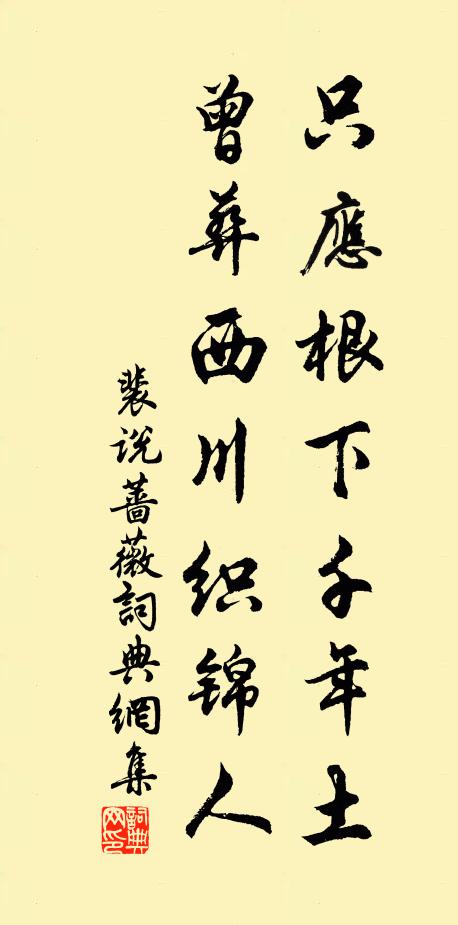 只應根下千年土
曾葬西川织錦人
裴说蔷薇詞典網集
詞典网印